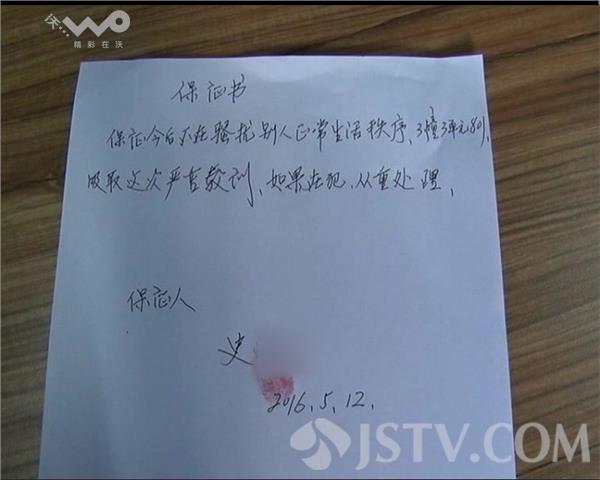 沃...
WO
精彩在沃
保证书
保证今后不在骚扰别人正常生活秩序、3幢3单元801、
吸取这次严重教训、如果在犯,从重处理、
保证人
史
2016.5.12.
JSTV.COM